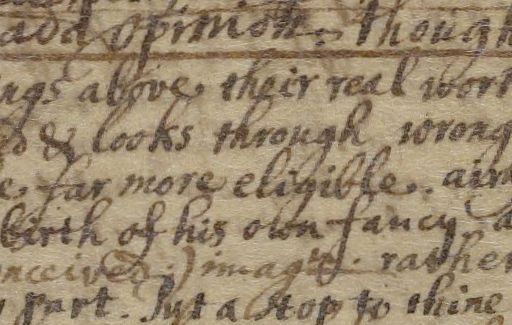 add opinion. though
ngs above their real wort
ed & looks through wrong
e. far more eligible. aim
birth of his own fancy a
onceived) imag rather
part. Put a stop to thine